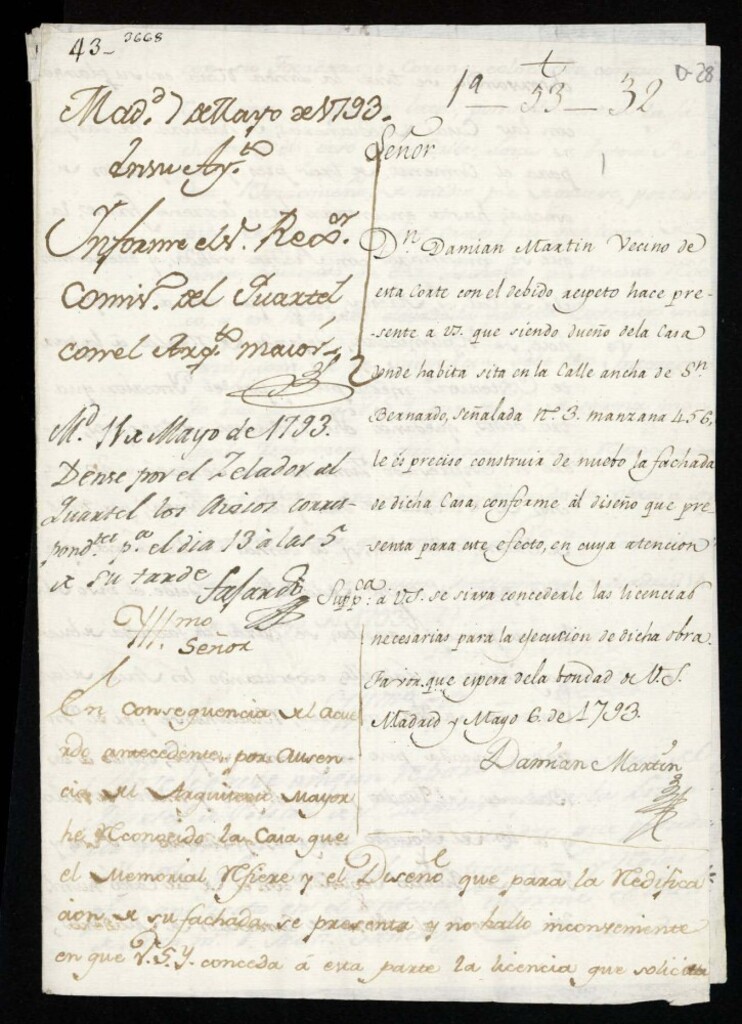 43- 3668
1a - 53 - 32
0-28
1
Mad.d 7 de Mayo de 1793.
En su Ay.to
Informe el S.r Rex.or
Comis.o del Quartel
con el Arq.to maior
M.d 11 de Mayo de 1793.
Dense por el Zelador del
Quartel los Avisos corres-
pond.tes p.a el dia 13 à las 5
de su tarde
Yllmo
Señor
En consequencia del acue
rdo antecedente, por ausen-
cia del Arquitecto Mayor
he Reconocido la Casa que
el Memorial Refiere y el Diseño que para la Redifica-
cion de su fachada se presenta y no hallo inconveniente
en que V.S.Y. conceda á esta parte la licencia que solicita
Señor
D.n Damian Martin Vecino de
esta Corte con el debido respeto hace pre-
-sente a VS. que siendo dueño dela Casa
donde habita sita en la Calle ancha de S.n
Bernardo, señalada n.o 3. manzana 456,
le es preciso construir de nuebo la fachada
de dicha Casa, conforme àl diseño que pre-
senta para este efecto, en cuya atencion
Supp.ca à V.S. se sirva concederle las licencias
necesarias para la ejecucion de dicha obra.
Favor que espera dela bondad de V.S.
Madrid y Mayo 6. de 1793.
Damian Martin